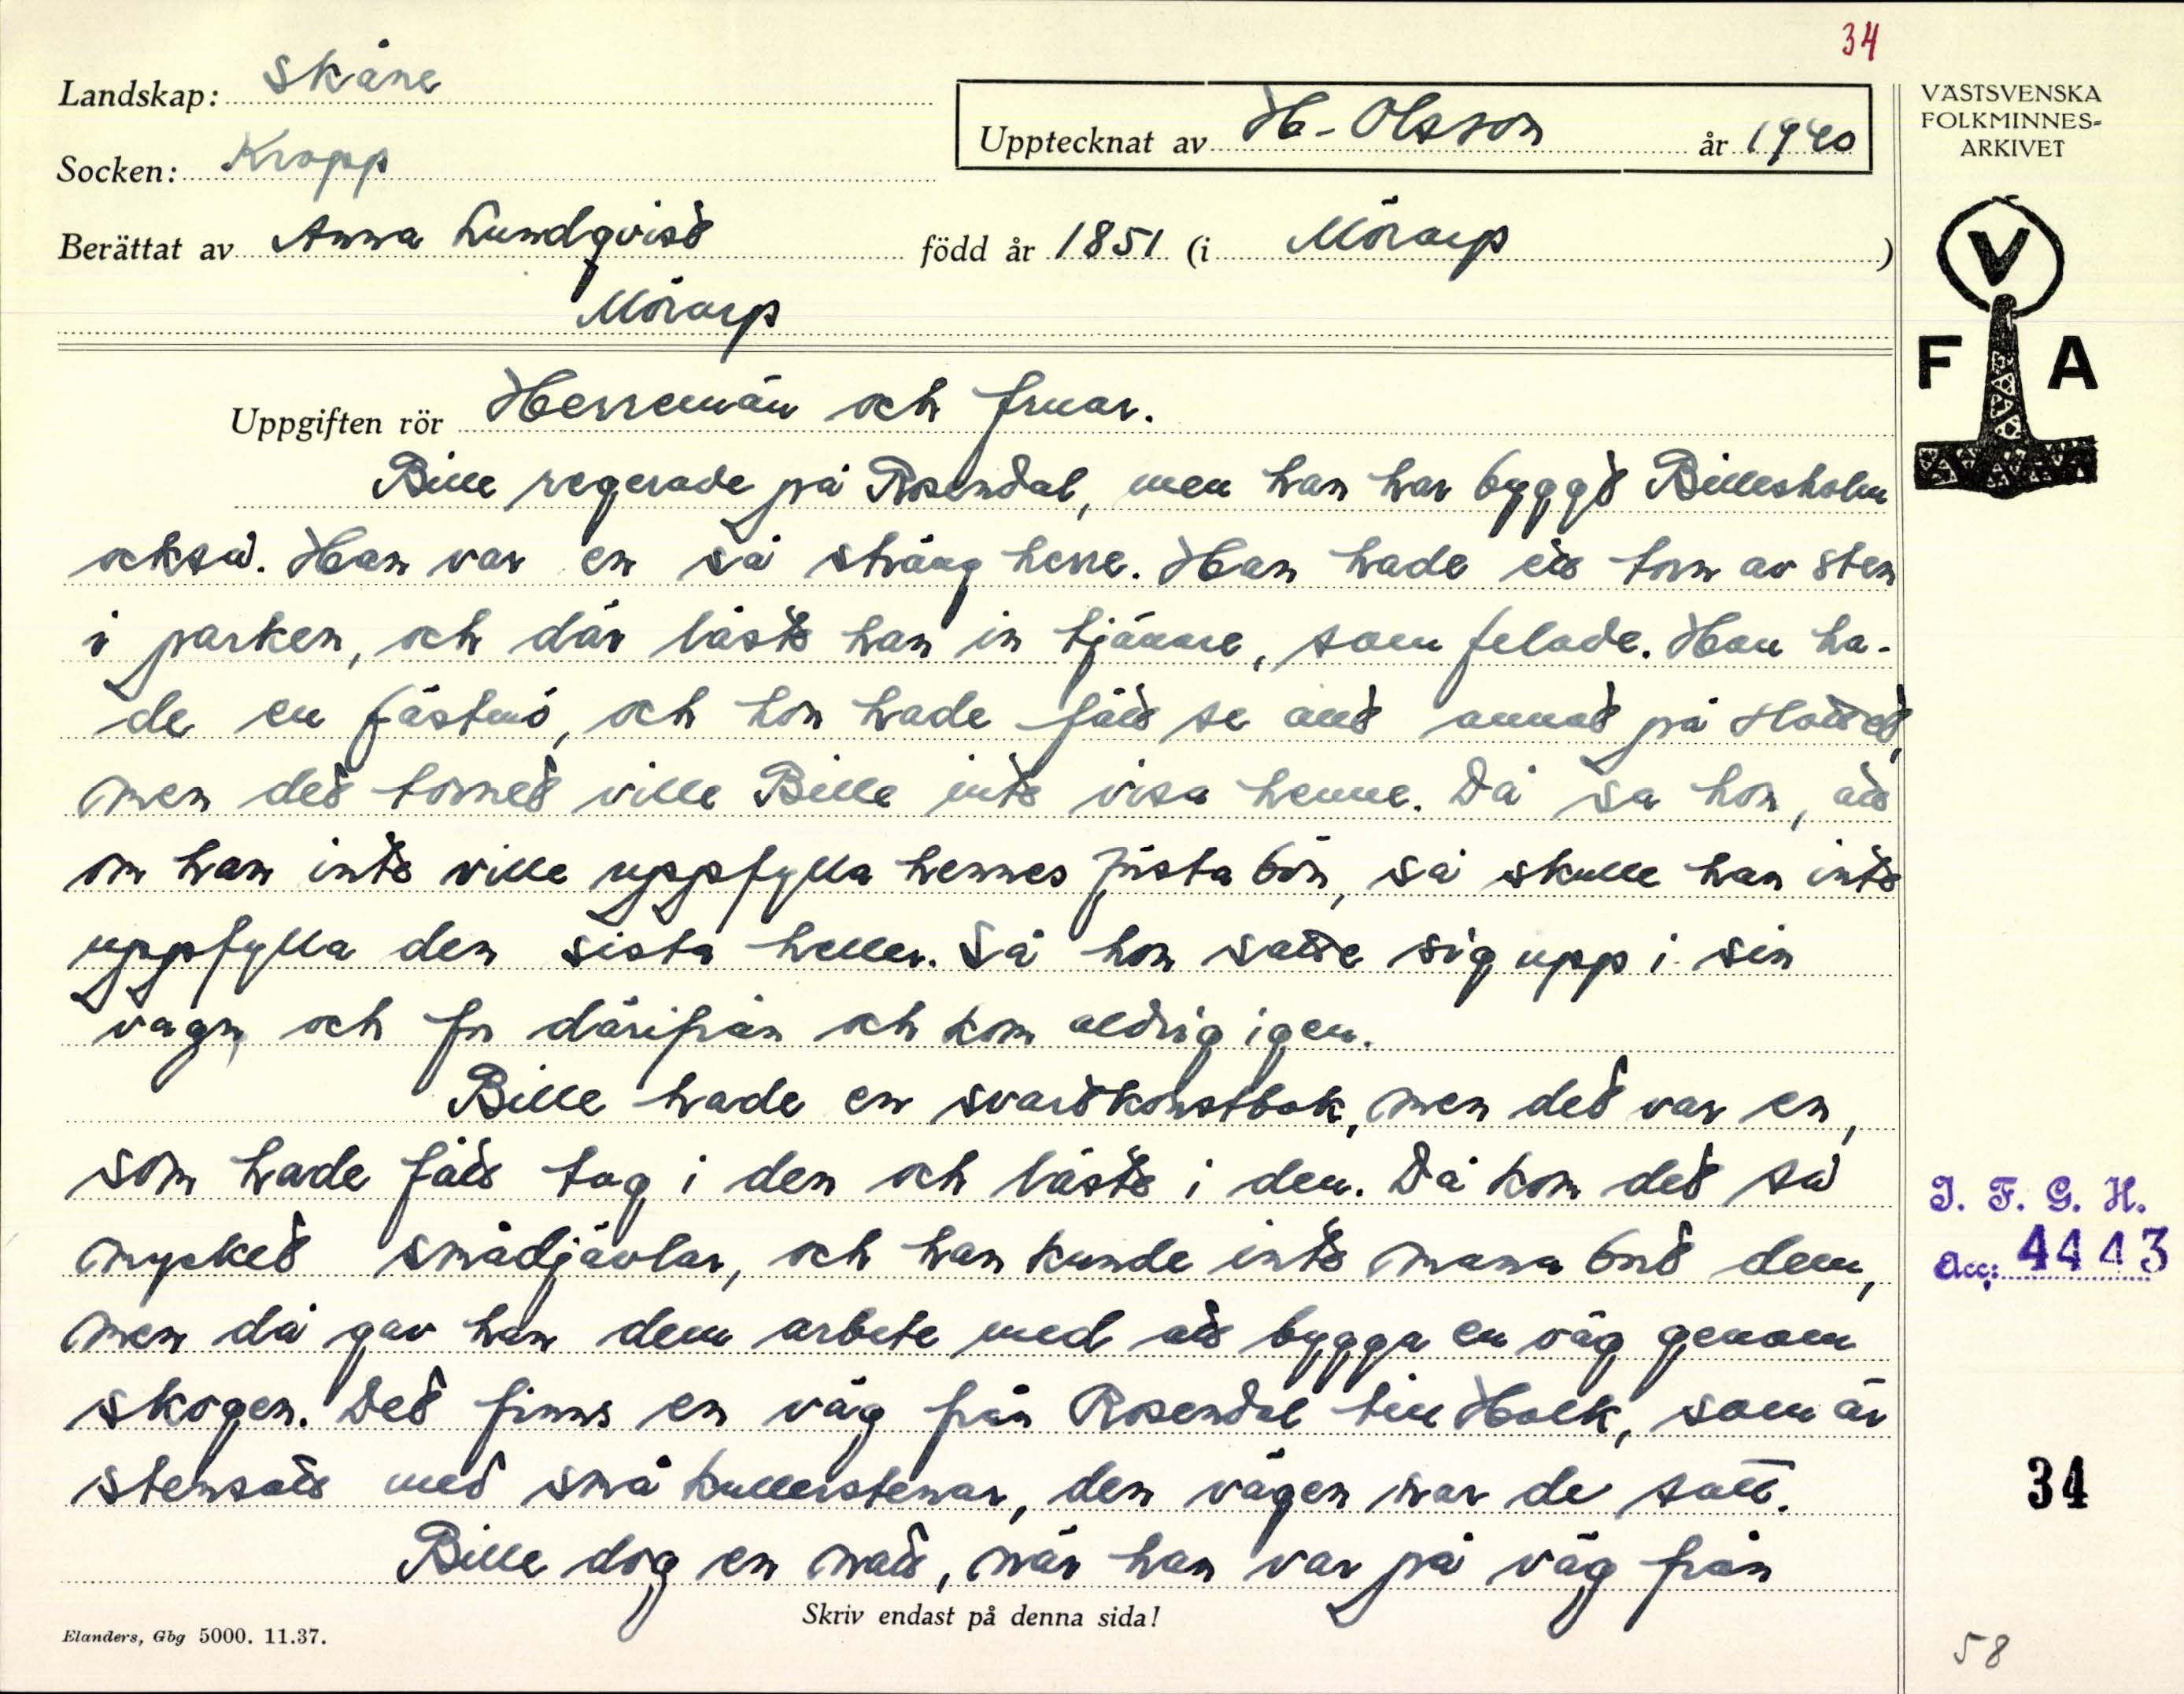 34
Landskap: Skåne
Upptecknat av H. Olsson år 1940
VÄSTSVENSKA
FOLKMINNES-
ARKIVET
Socken: Kropp
Berättat av Anna Lundqvist född år 1851 (i Mörarp)
Mörarp
V
F A
Uppgiften rör Herremän och fruar.
Bille regerade på Rosendal, men han har byggt Billesholm
också. Han var en så sträng herre. Han hade ett torn av sten
i parken, och där låste han in tjänare, som felade. Han ha-
de en fästmö, och hon hade fått se allt annat på slottet,
men det tornet ville Bille inte visa henne. Då sa hon, att
om han inte ville uppfylla hennes första bön, så skulle han inte
uppfylla den sista heller. Så hon satte sig upp i sin
vagn och for därifrån och kom aldrig igen.
Bille hade en svartkonstbok, men det var en,
som hade fått tag i den och läste i den. Då kom det så
mycket smådjävlar, och han kunde inte mana bort dem,
men då gav han dem arbete med att bygga en väg genom
skogen. Det finns en väg från Rosendal till Holk, som är
stensatt med små kullerstenar, den vägen har de satt.
Bille dog en natt, när han var på väg från
I. F. G. H.
Acc: 4443
34
Skriv endast på denna sida!
Elanders, Gbg 5000. 11.37.
58